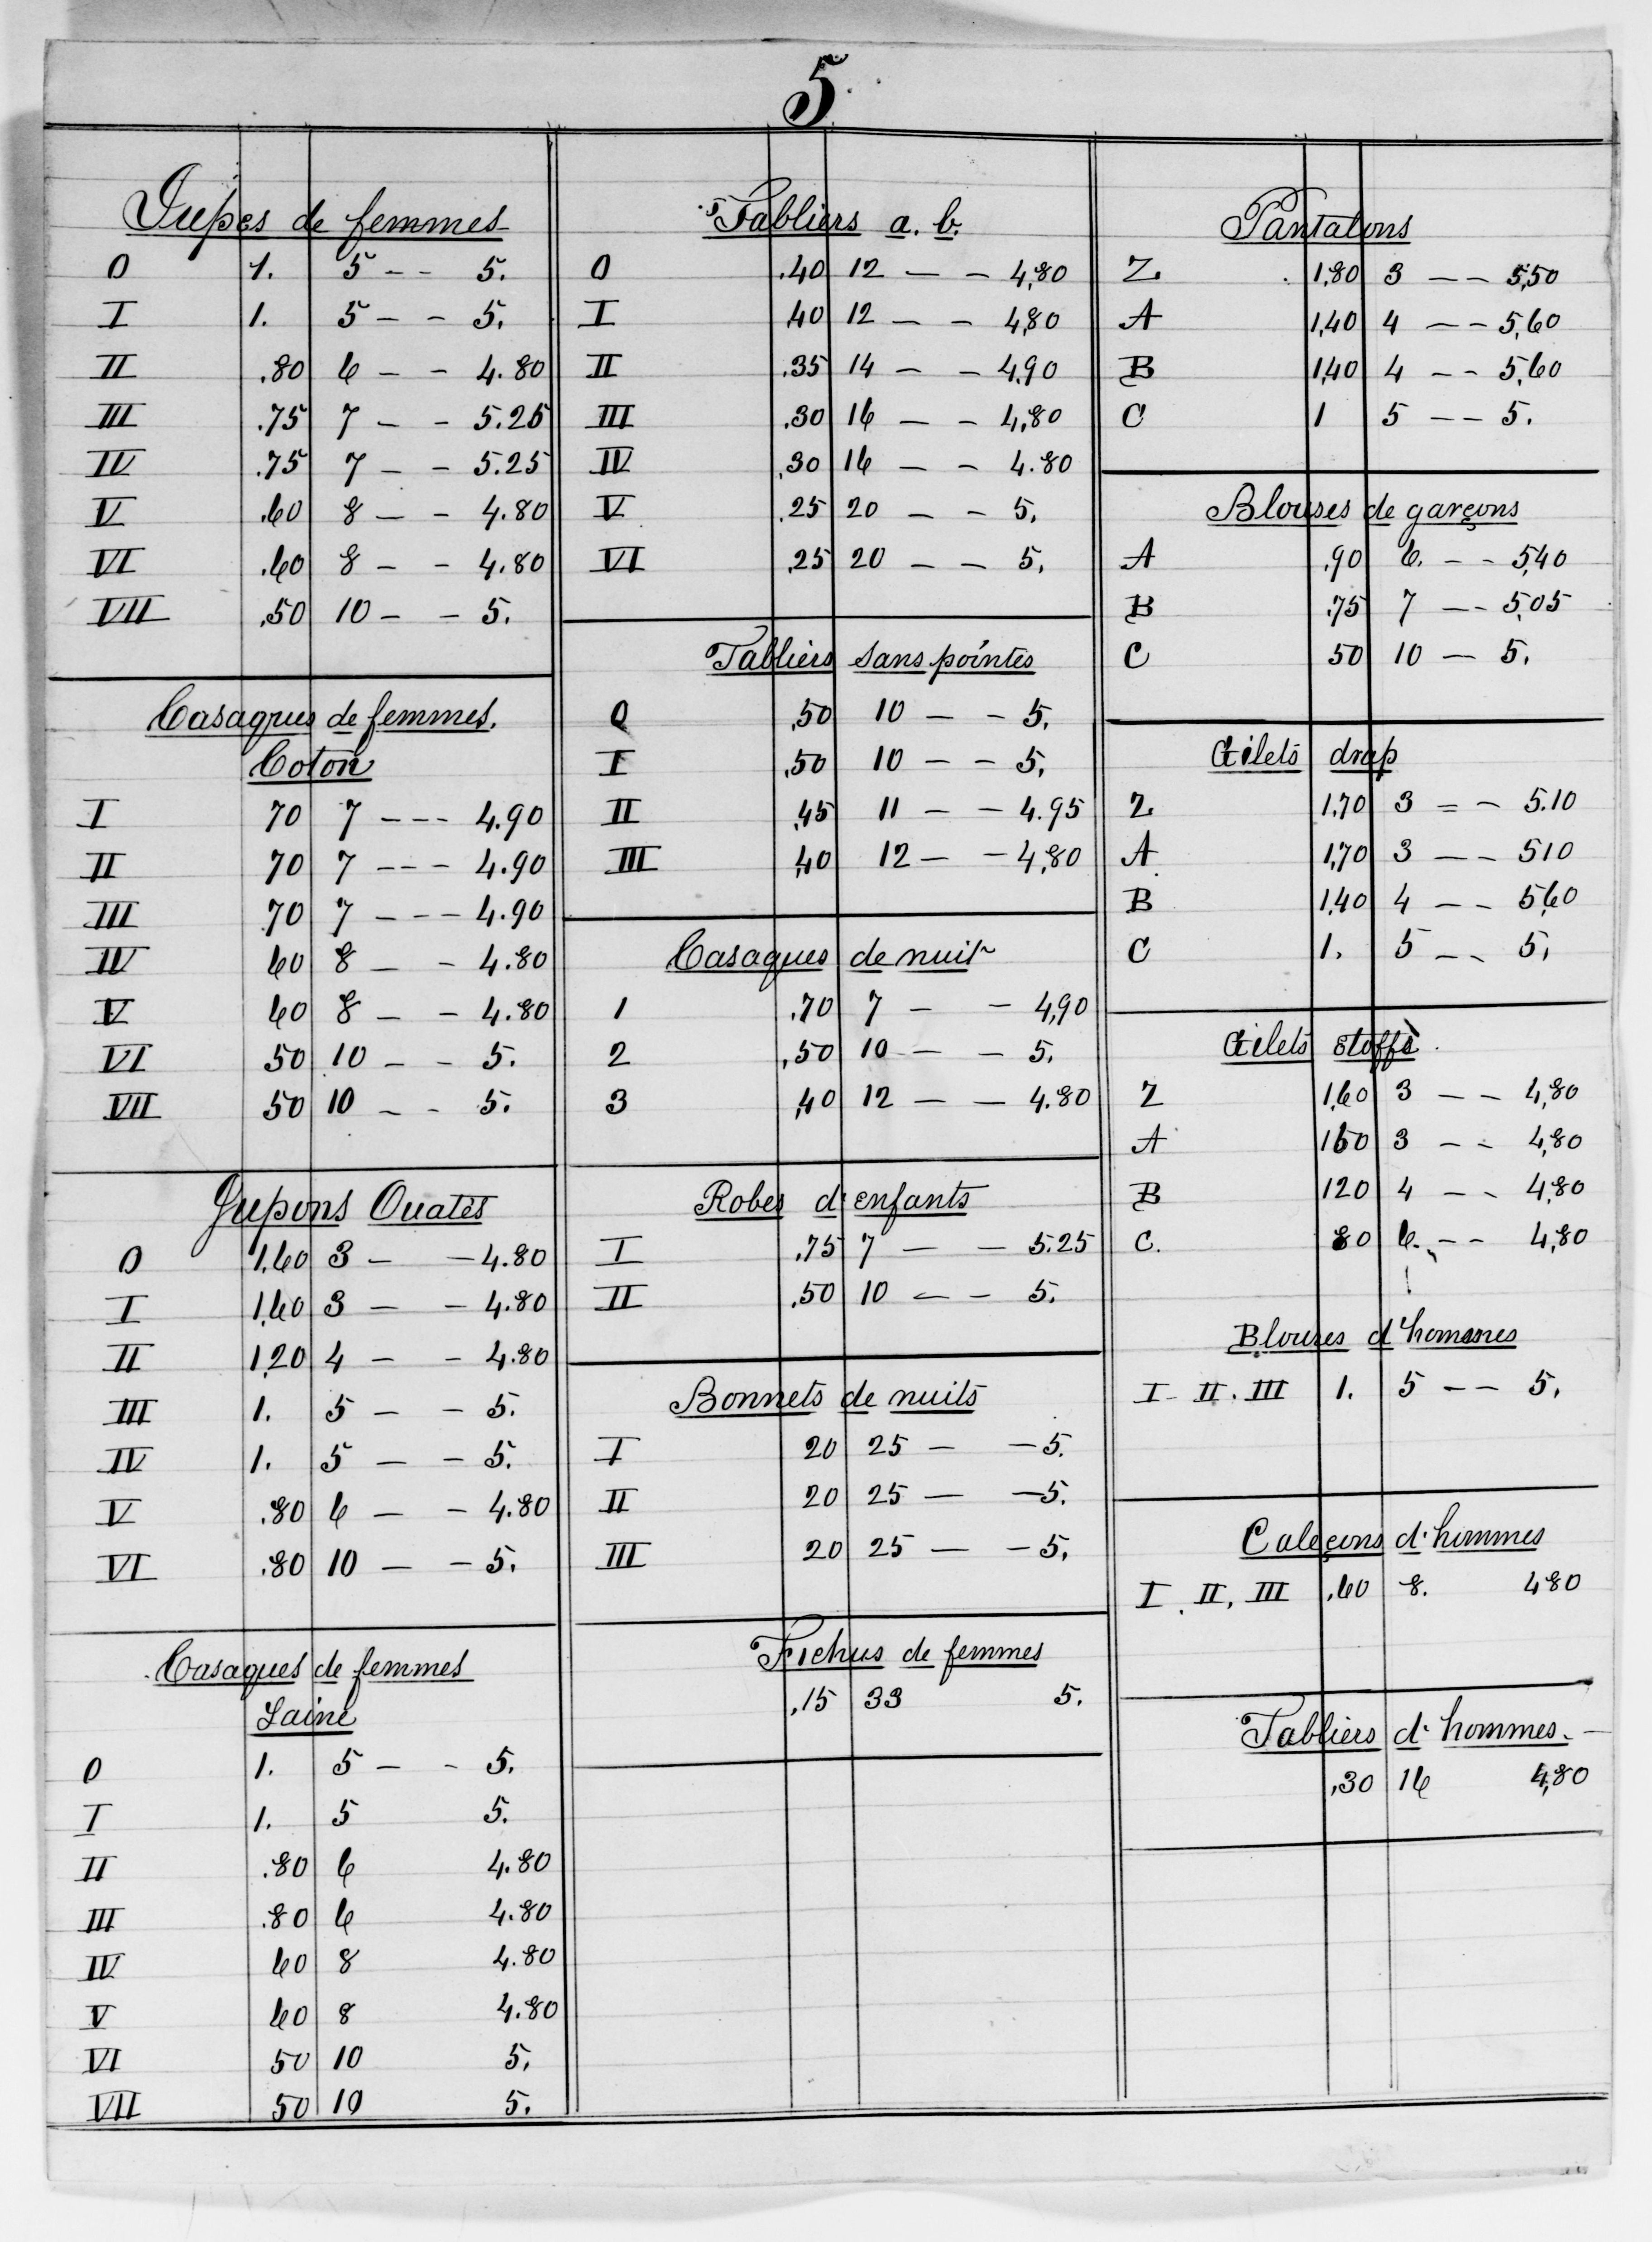 5
Jupes de femmes
O 1. 5 - - 5.
I 1. 5 - - 5.
II .80 6 - - 4.80
III .75 7 - - 5.25
IV .75 7 - - 5.25
V .60 8 - - 4.80
VI .60 8 - - 4.80
VII .50 10 - - 5.
Casaques de femmes.
Coton
I 70 7 - - - 4.90
II 70 7 - - - 4.90
III 70 7 - - - 4.90
IV 60 8 - - 4.80
V 60 8 - - 4.80
VI 50 10 - - 5.
VII 50 10 - - 5.
Jupons Ouatés
O 1,60 3 - - 4.80
I 1,60 3 - - 4.80
II 1,20 4 - - 4.80
III 1. 5 - - 5.
IV 1. 5 - - 5.
V .80 6 - - 4.80
VI .80 10 - - 5.
Casaques de femmes
Laine
O 1. 5 - - 5.
I 1. 5 5.
II .80 6 4.80
III .80 6 4.80
IV 60 8 4.80
V 60 8 4.80
VI 50 10 5.
VII 50 10 5.
Tabliers a. b.
O .40 12 - - 4,80
I ,40 12 - - 4,80
II .35 14 - - 4,90
III .30 16 - - 4,80
IV ,30 16 - - 4.80
V .25 20 - - 5.
VI ,25 20 - - 5.
Tabliers sans pointes
O ,50 10 - - 5.
I ,50 10 - - 5.
II ,45 11 - - 4.95
III ,40 12 - - 4,80
Casaques de nuit
1 .70 7 - - 4,90
2 .50 10 - - 5.
3 ,40 12 - - 4.80
Robes d'enfants
I .75 7 - - 5.25
II .50 10 - - 5.
Bonnets de nuits
I 20 25 - - 5.
II 20 25 - - 5.
III 20 25 - - 5.
Fichus de femmes
,15 33 5.
Pantalons
Z. 1,80 3 - - 5,50
A 1,40 4 - - 5,60
B 1,40 4 - - 5,60
C 1 5 - - 5.
Blouses de garçons
A .90 6. - - 5,40
B .75 7 - - 5,05
C 50 10 - 5.
Gilets drap
Z. 1,70 3 - - 5.10
A 1,70 3 - - 510
B 1,40 4 - - 5,60
C 1. 5 - - 5.
Gilets stoffe
Z 1,60 3 - - 4,80
A 160 3 - - 4,80
B 120 4 - - 4,80
C. 80 6. - - 4,80
Blouses d'hommes
I - II . III 1. 5 - - 5.
Caleçons d'hommes
I . II, III .60 8. 480
Tabliers d'hommes. -
,30 16 4,80